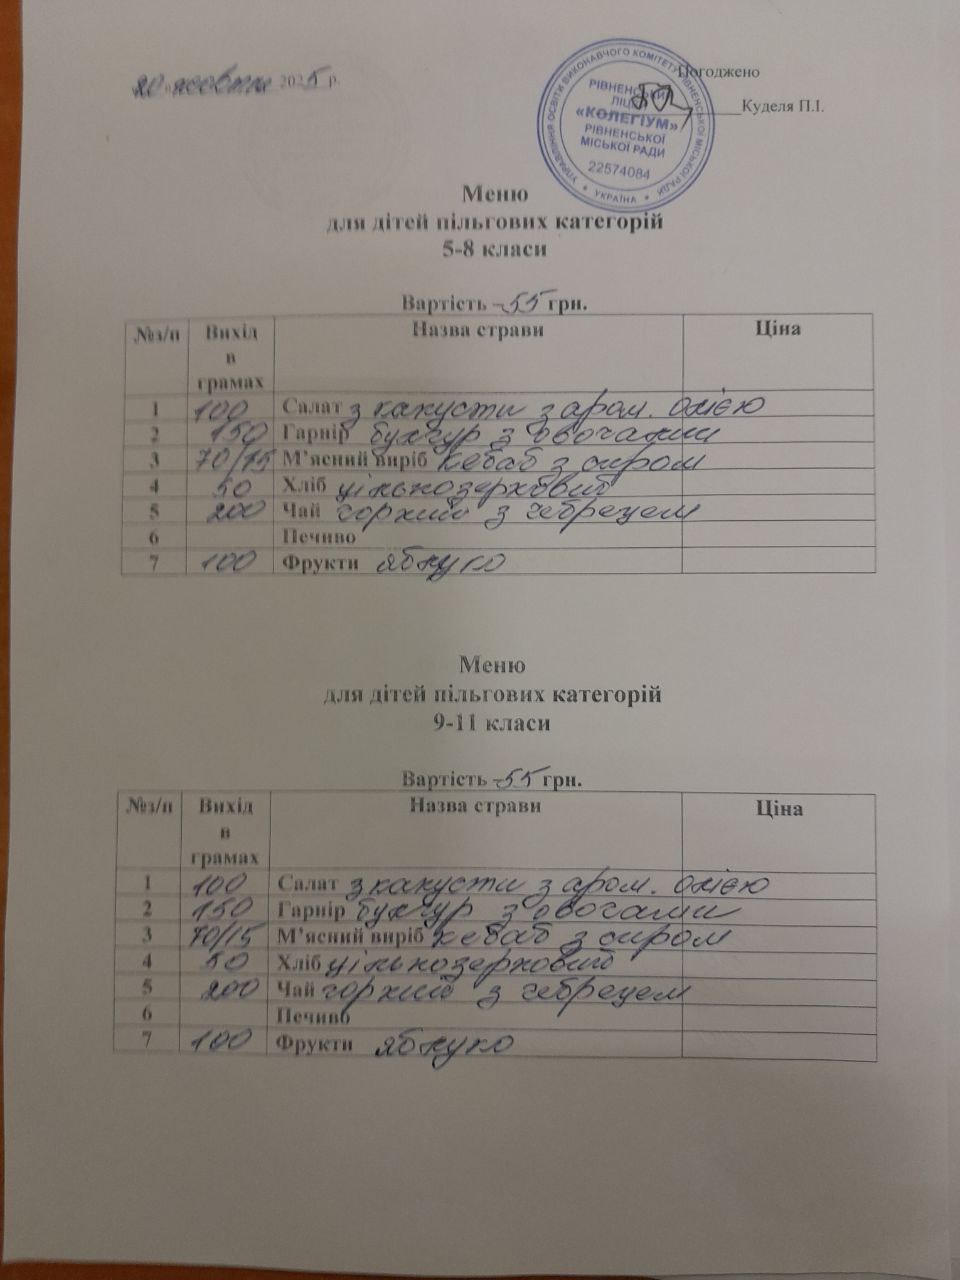 20 жовтня 2025 р.
Погоджено
Куделя П.І.
УПРАВЛІННЯ ОСВІТИ ВИКОНАВЧОГО КОМІТЕТУ РІВНЕНСЬКОЇ МІСЬКОЇ РАДИ
* УКРАЇНА *
РІВНЕНСЬКИЙ
ЛІЦЕЙ
«КОЛЕГІУМ»
РІВНЕНСЬКОЇ
МІСЬКОЇ РАДИ
22574084
Меню
для дітей пільгових категорій
5-8 класи
Вартість -55 грн.
№з/п Вихід в грамах Назва страви Ціна
1 100 Салат з капусти з аром. олією
2 150 Гарнір булгур з овочами
3 70/15 М’ясний виріб кебаб з сиром
4 50 Хліб цільнозерновий
5 200 Чай чорний з чебрецем
6 Печиво
7 100 Фрукти яблуко
Меню
для дітей пільгових категорій
9-11 класи
Вартість -55 грн.
№з/п Вихід в грамах Назва страви Ціна
1 100 Салат з капусти з аром. олією
2 150 Гарнір булгур з овочами
3 70/15 М’ясний виріб кебаб з сиром
4 50 Хліб цільнозерновий
5 200 Чай чорний з чебрецем
6 Печиво
7 100 Фрукти яблуко